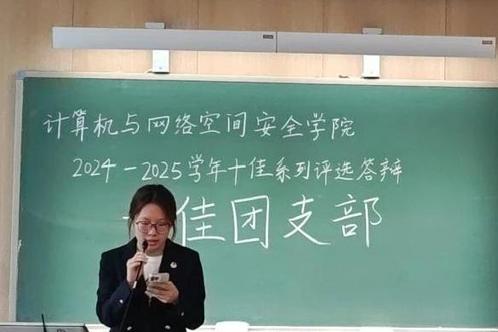 计算机与网络空间安全学院
2024-2025学年十佳系列评选答辩
佳团支部